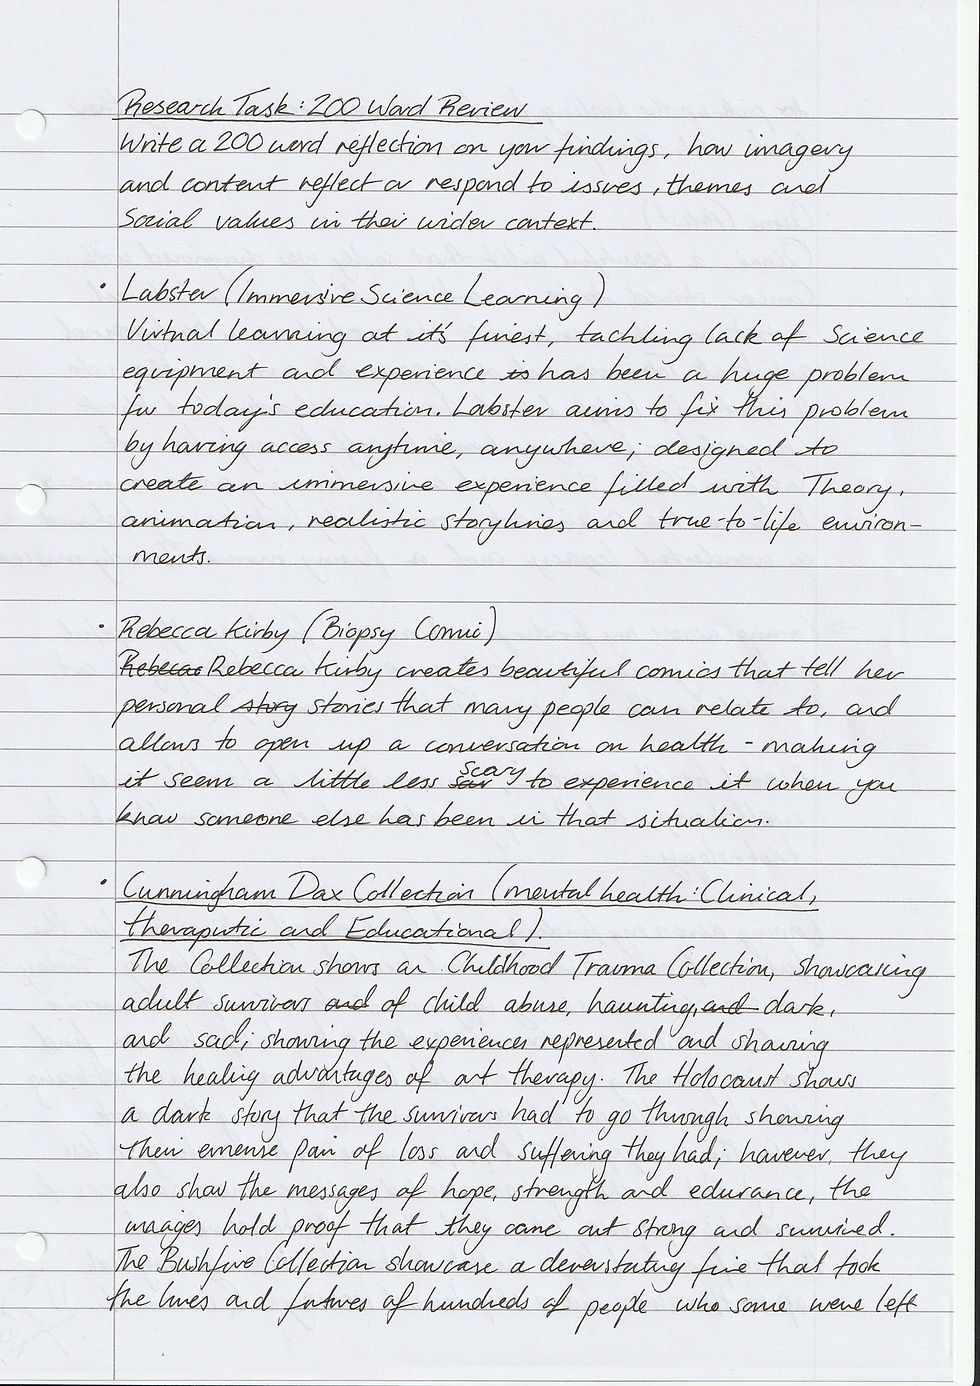 Research Task: 200 Word Review
Write a 200 word reflection on your findings, how imagery
and content reflect or respond to issues, themes and
Social values in their wider context.
• Labster (Immersive Science Learning)
Virtual learning at it's finest, tackling lack of Science
equipment and experience is has been a huge problem
for today's education. Labster aims to fix this problem
by having access anytime, anywhere; designed to
create an immersive experience filled with Theory,
animation, realistic storylines and true-to-life environ-
ments.
• Rebecca Kirby (Biopsy Comic)
Rebecca Rebecca Kirby creates beautiful comics that tell her
personal story stories that many people can relate to, and
allows to open up a conversation on health - making
it seem a little less scary to experience it when you
know someone else has been in that situation.
• Cunningham Dax Collection (mental health: Clinical,
theraputic and Educational).
The Collection shows an Childhood Trauma Collection, showcasing
adult survivors and of child abuse, haunting, and dark,
and sad; showing the experiences represented and sharing
the healing advantages of art therapy. The Holocaust shows
a dark story that the survivors had to go through showing
their emense pain of loss and suffering they had; however, they
also show the messages of hope, strength and edurance, the
images hold proof that they came out strong and survived.
The Bushfire Collection showcase a devastating fire that took
the lives and futures of hundreds of people who some were left